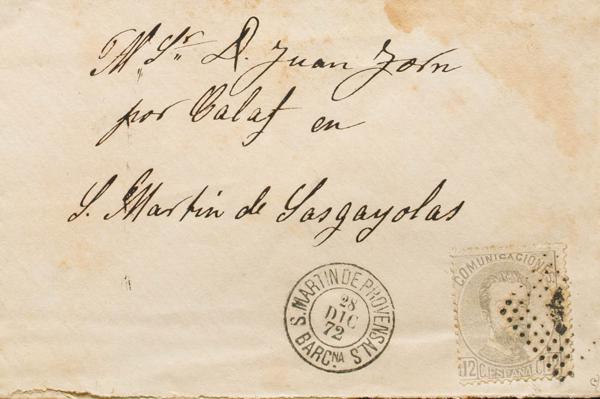 M. Sr. D. Juan Zorn
por Calaf en
S. Martin de Sasgayolas
S. MARTIN DE PROVENSALS
28
DIC
72
BARCNA
COMUNICACIONES
12 C. ESPAÑA C.